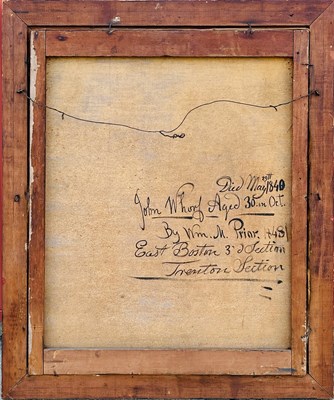 Died May 15th 1840
John Whorf Aged 30 in Oct.
By Wm. M. Prior. 1843
East Boston 3d Section
Trenton Section